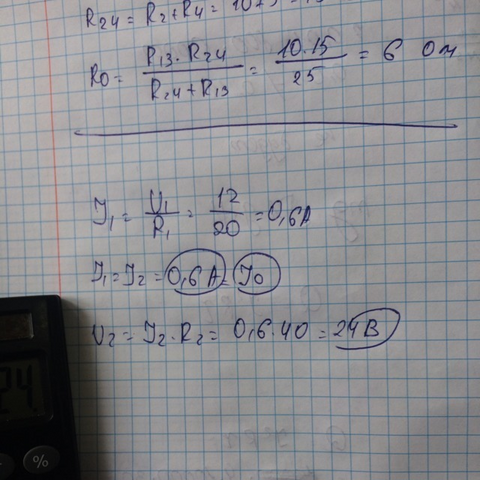 R24 = R2 + R4 = 10+5 =
R0 = R13 · R24 / R24 + R13 = 10·15 / 25 = 6 Ом
J1 = U1 / R1 = 12 / 20 = 0,6А
J1 = J2 = 0,6А = J0
U2 = J2 · R2 = 0,6·40 = 24В
24
%